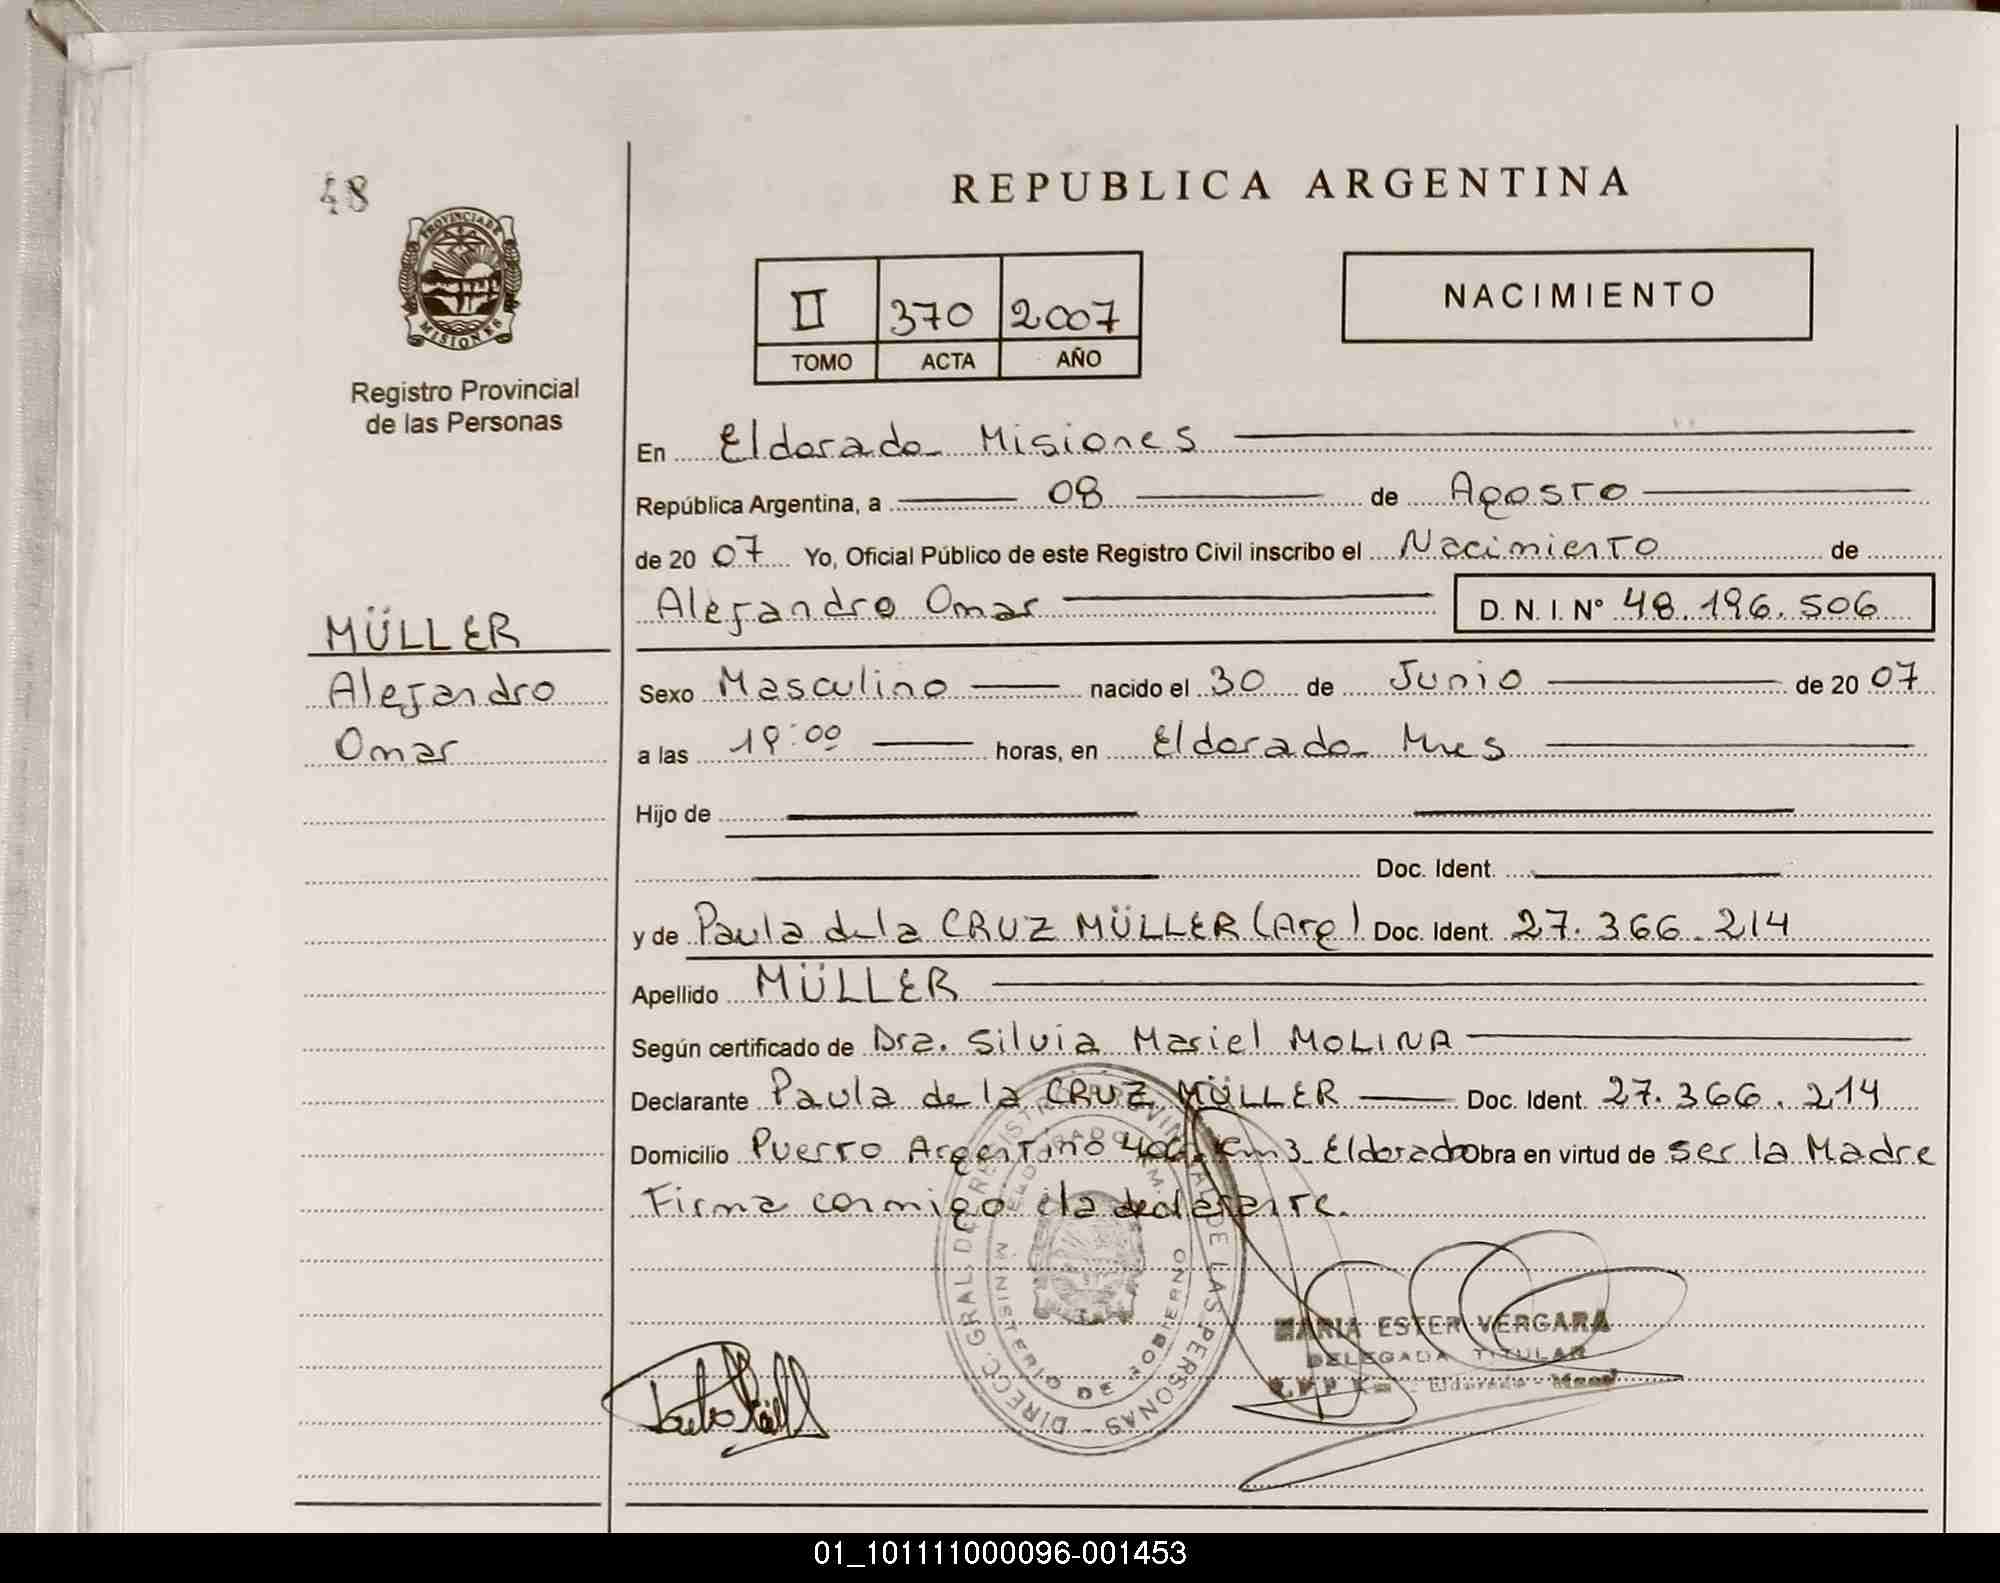 48
REPUBLICA ARGENTINA
PROVINCIA DE MISIONES
Registro Provincial
de las Personas
II 370 2007
TOMO ACTA AÑO
NACIMIENTO
En Eldorado Misiones
República Argentina, a 08 de Agosto
de 20 07 Yo, Oficial Público de este Registro Civil inscribo el Nacimiento de
Alejandro Omar D. N. I. N° 48.196.506
MÜLLER
Alejandro
Omar
Sexo Masculino nacido el 30 de Junio de 20 07
a las 19:00 horas, en Eldorado Mnes
Hijo de
Doc. Ident.
y de Paula de la CRUZ MÜLLER (Arg) Doc. Ident. 27.366.214
Apellido MÜLLER
Según certificado de Dra. Silvia Mariel MOLINA
Declarante Paula de la CRUZ MÜLLER Doc. Ident. 27.366.214
Domicilio Puerto Argentino 400 Km 3 Eldorado obra en virtud de ser la Madre
Firma conmigo la declarante.
DIRECC. GRAL. DE REGISTRO PROVINCIAL DE LAS PERSONAS
MINISTERIO DE GOBIERNO
MARIA ESTER VERGARA
DELEGADA TITULAR
Eldorado - Mnes
01_101111000096-001453